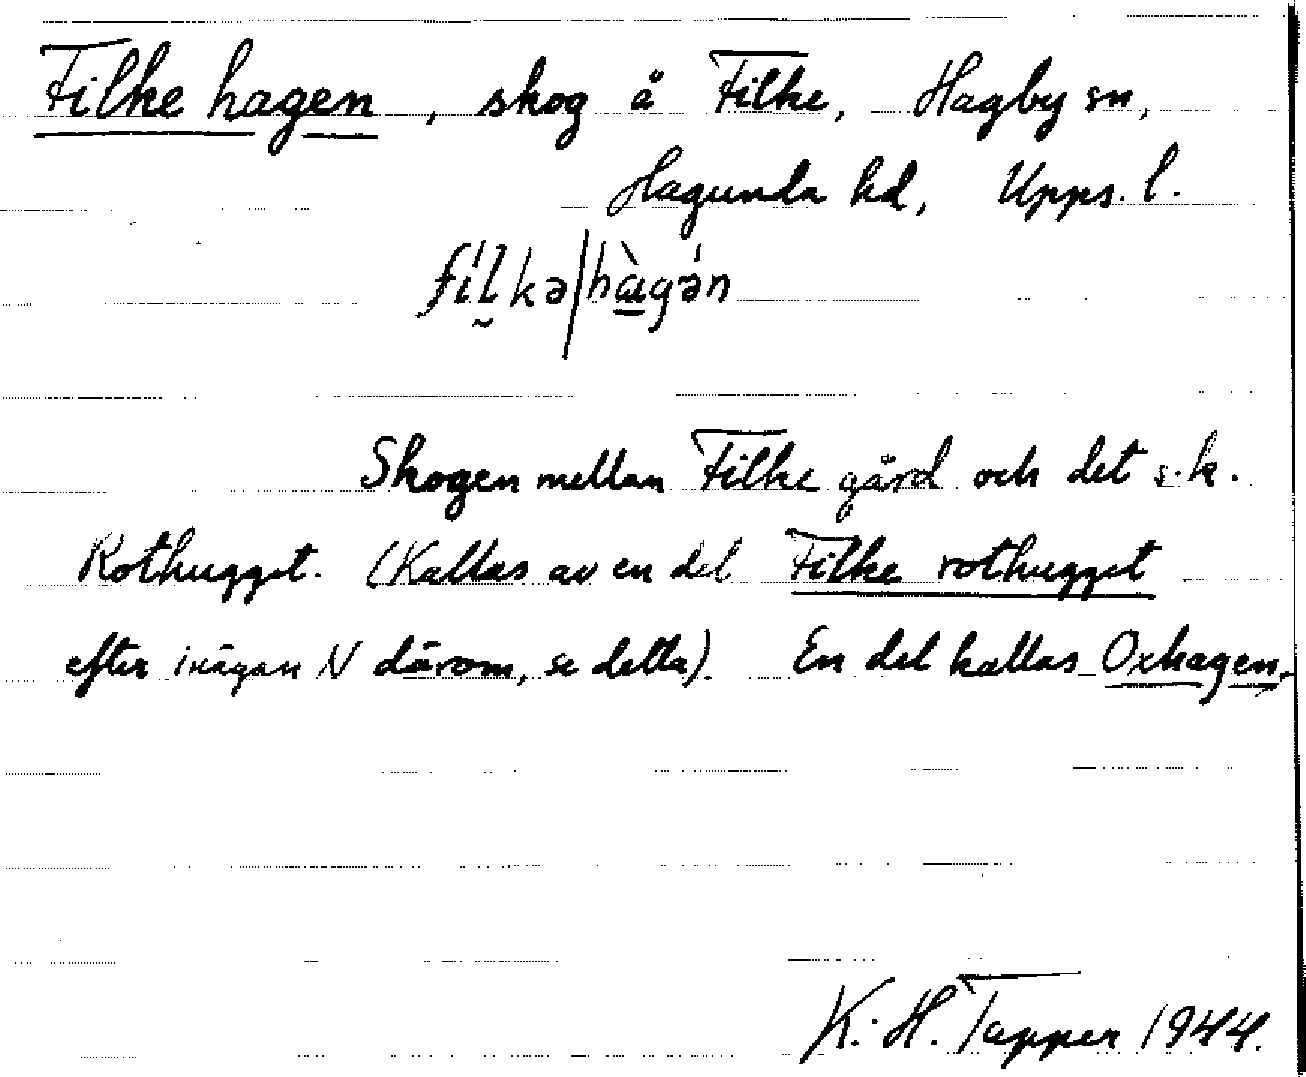 Filke hagen, skog å Filke, Hagby sn,
Hagunda hd, Upps. l.
fílkə|hàgə́n
Skogen mellan Filke gård och det s.k.
Rothugget. (Kallas av en del Filke rothugget
efter inägan N därom, se detta). En del kallas Oxhagen.
K.-H. Tapper 1944.